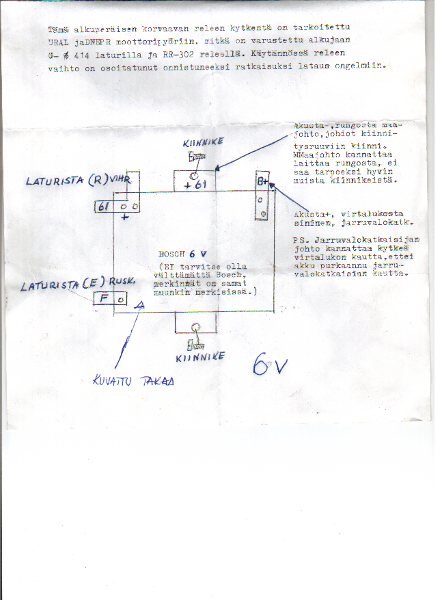 Tämä alkuperäisen korvaavan releen kytkentä on tarkoitettu
URAL jaDNEPR moottoripyöriin, mitkä on varustettu alkujaan
G- 414 laturilla ja RR-302 releellä. Käytännössä releen
vaihto on osoitatunut onnistuneeksi ratkaisuksi lataus ongelmiin.
KIINNIKE
+61
Akusta-,rungosta maa-
johto,johdot kiinni-
tysruuviin kiinni.
MMaajohto kannattaa
laittaa rungosta, ei
saa tarpeeksi hyvin
muista kiinnikeistä.
LATURISTA (R) VIHR.
61
+
B+
Akusta+, virtalukosta
sininen, jarruvalokatk.
PS. Jarruvalokatkaisijan
johto kannattaa kytkeä
virtalukon kautta,ettei
akku purkaannu jarru-
valokatkaisian kautta.
BOSCH 6 V
(EI tarvitse olla
välttämättä Bosch,
merkinnät on samat
muunkin merkisissä.)
LATURISTA (E) RUSK.
F
KIINNIKE
KUVATTU TAKAA
6V